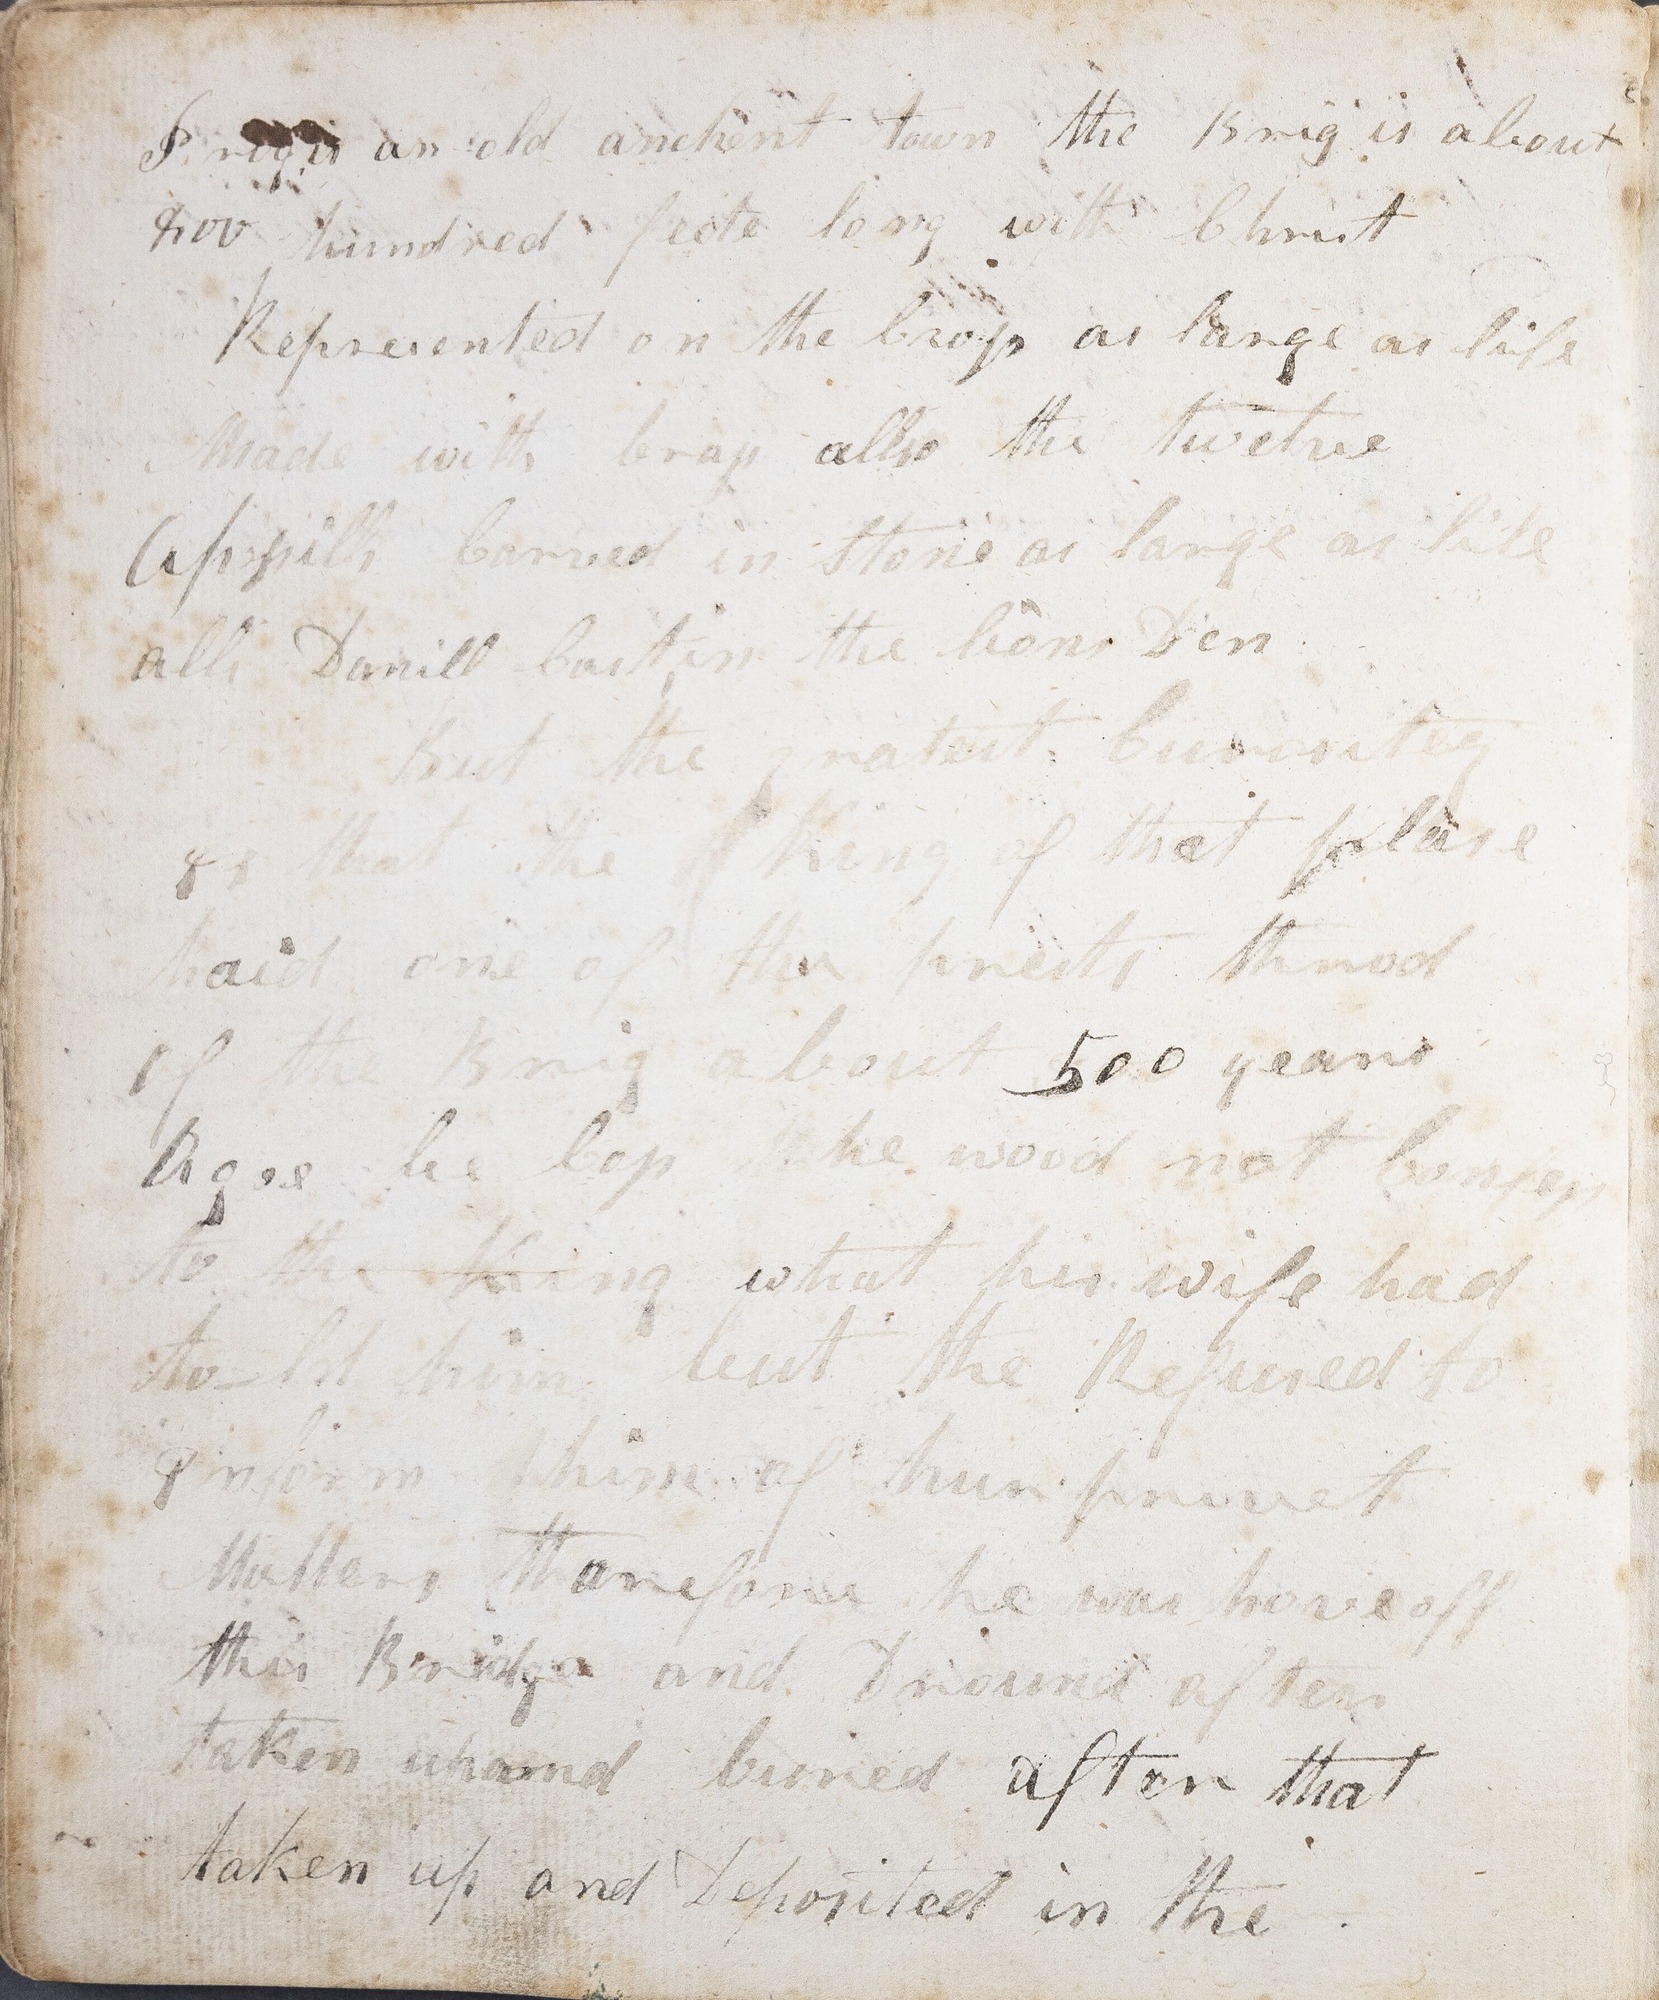 is an old anchent town the Brig is about
hundred feete long with Christ
Represented on the Cross as large as life
Made with brass allso the twelve
Carved in Stone as large as life
alls Danill Cast in the lions Den
But the gratest Curositey
is that the King of that plase
haid one of the priests throd
of the Brig about 500 years
Agoe be Cos he wood not Confess
to the King what his wife had
to-ld him but he Refused to
inform him of hur privet
Matters tharefore he was hove off
this Bridge and Dround after
taken up and buried after that
taken up and Deposited in the